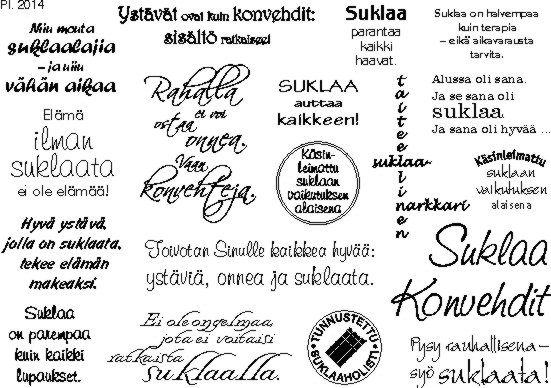 Pl. 2014
Niin monta
suklaalajia
– ja niin
vähän aikaa
Ystävät ovat kuin konvehdit:
sisältö ratkaisee!
Suklaa
parantaa
kaikki
haavat.
Suklaa on halvempaa
kuin terapia
– eikä aikavarausta
tarvita.
Elämä
ilman
suklaata
ei ole elämää!
Rahalla
ei voi
ostaa
onnea.
Vaan
konvehteja.
SUKLAA
auttaa
kaikkeen!
taiteellinen
suklaa-
narkkari
Alussa oli sana.
Ja se sana oli
suklaa
Ja sana oli hyvää ...
Käsin-
leimattu
suklaan
vaikutuksen
alaisena
Käsinleimattu
suklaan
vaikutuksen
alaisena
Hyvä ystävä,
jolla on suklaata,
tekee elämän
makeaksi.
Toivotan Sinulle kaikkea hyvää:
ystäviä, onnea ja suklaata.
Suklaa
Konvehdit
Suklaa
on parempaa
kuin kaikki
lupaukset.
Ei ole ongelmaa,
jota ei voitaisi
ratkaista
suklaalla.
TUNNUSTETTU
SUKLAAHOLISTI
Pysy rauhallisena –
syö suklaata!